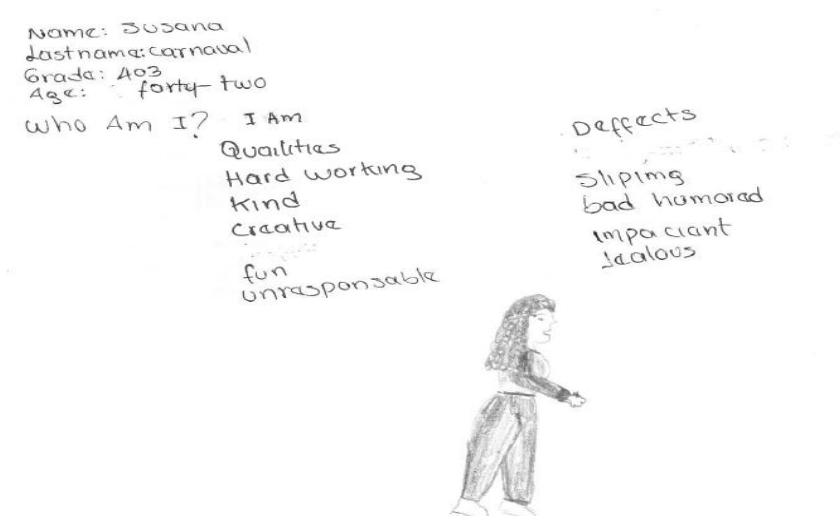 Name: Susana
Lastname: carnaval
Grade: 403
Age: forty-two
Who Am I? I Am
Quailities
Hard working
Kind
Creative
fun
unresponsable
Deffects
Sliping
bad humorad
impaciant
Jealous